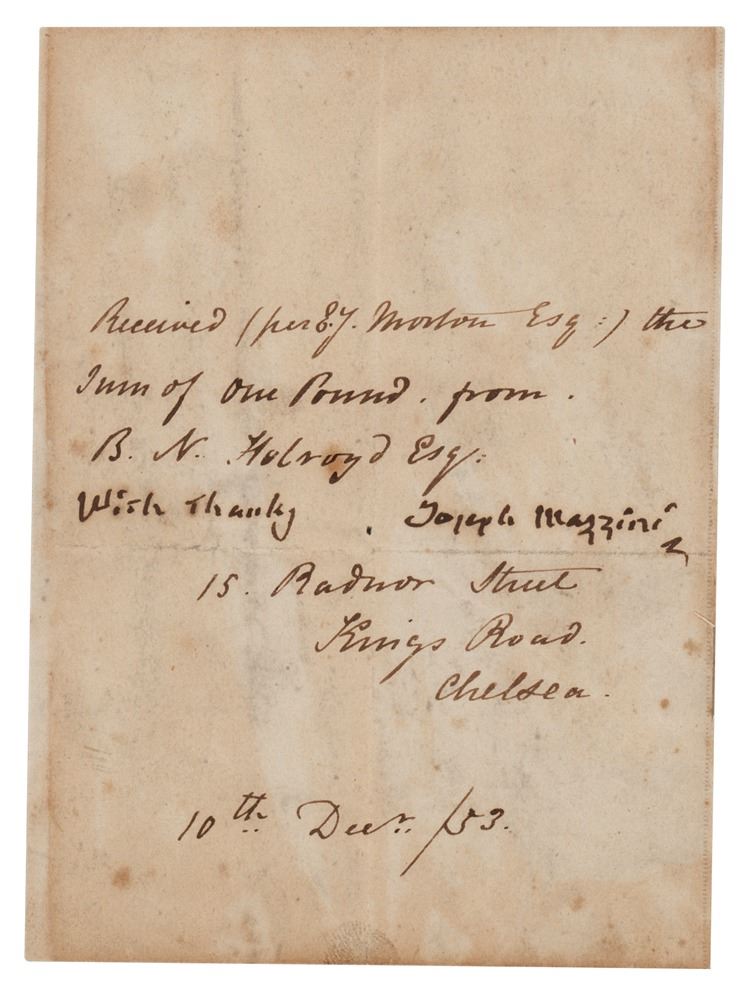 Received (per E. J. Morton Esq:) the
Sum of One Pound. from.
B. N. Holroyd Esq:
With Thanks . Joseph Mazzini
15. Radnor Street
Kings Road.
Chelsea.
10th Decr. /53.